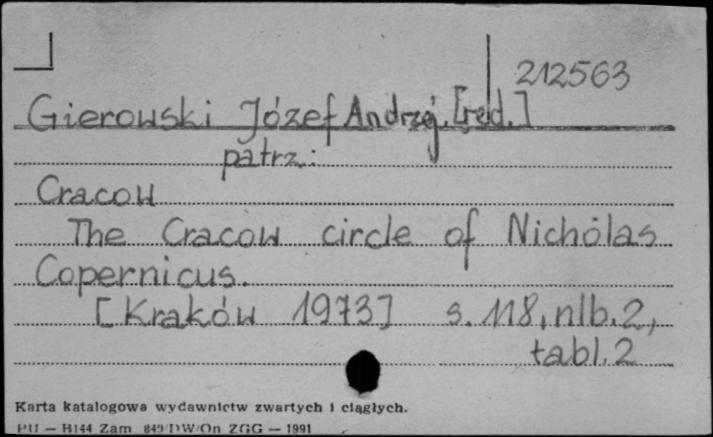 212563
Gierowski Józef Andrzej. [red.]
patrz:
Cracow
The Cracow circle of Nicholas
Copernicus.
[Kraków 1973] s. 118, nlb. 2,
tabl. 2
Karta katalogowa wydawnictw zwartych i ciągłych.
PU — H144 Zam 849/DW/On ZGG — 1991